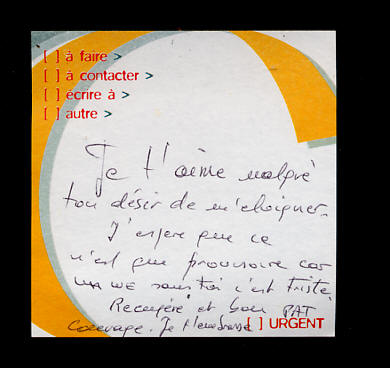 [ ] à faire >
[ ] à contacter >
[ ] écrire à >
[ ] autre >
Je t'aime malgré
ton désir de m'eloigner.
J'espere que ce
n'est que provisoire car
sans toi c'est triste.
et bon PAT
courage. Je t'embrasse
[ ] URGENT